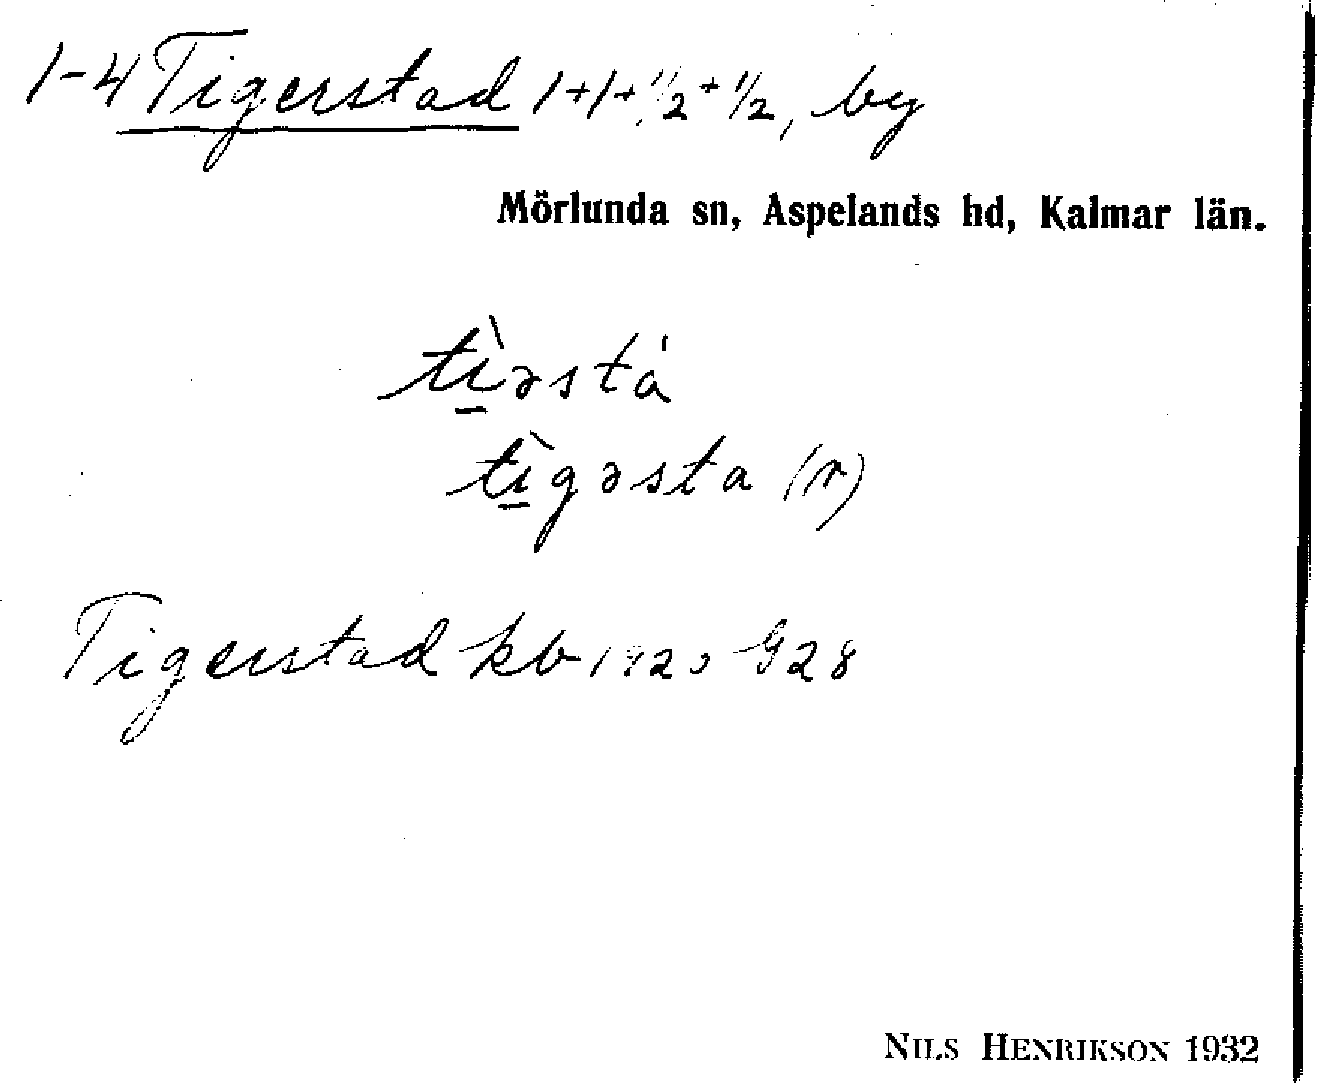 1-4 Tigerstad 1+1+1/2+1/2, by
Mörlunda sn, Aspelands hd, Kalmar län.
tì̠əstá
tì̠gəsta (r)
Tigerstad kb 1920 G28
NILS HENRIKSON 1932